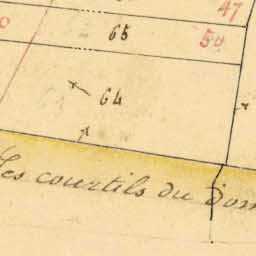 47
65
50
64
les courtils du